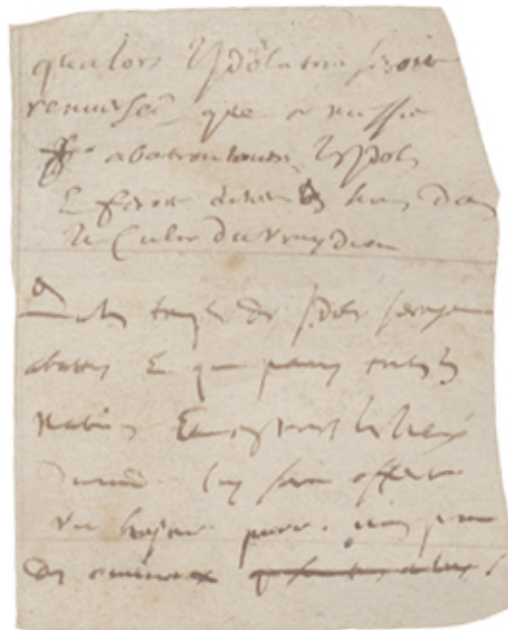 qualors lydolatrie seroit
renversée, que ce messie
abatroit toutes les ydoles
& feroit entrer les hōes dans
le culte du vray dieu
Que les temples des ydoles seroyent
abatus & que parmy toutes les
nations & en tous les lieux
du monde luy seroit offerte
une hostie pure. non point
des animaux